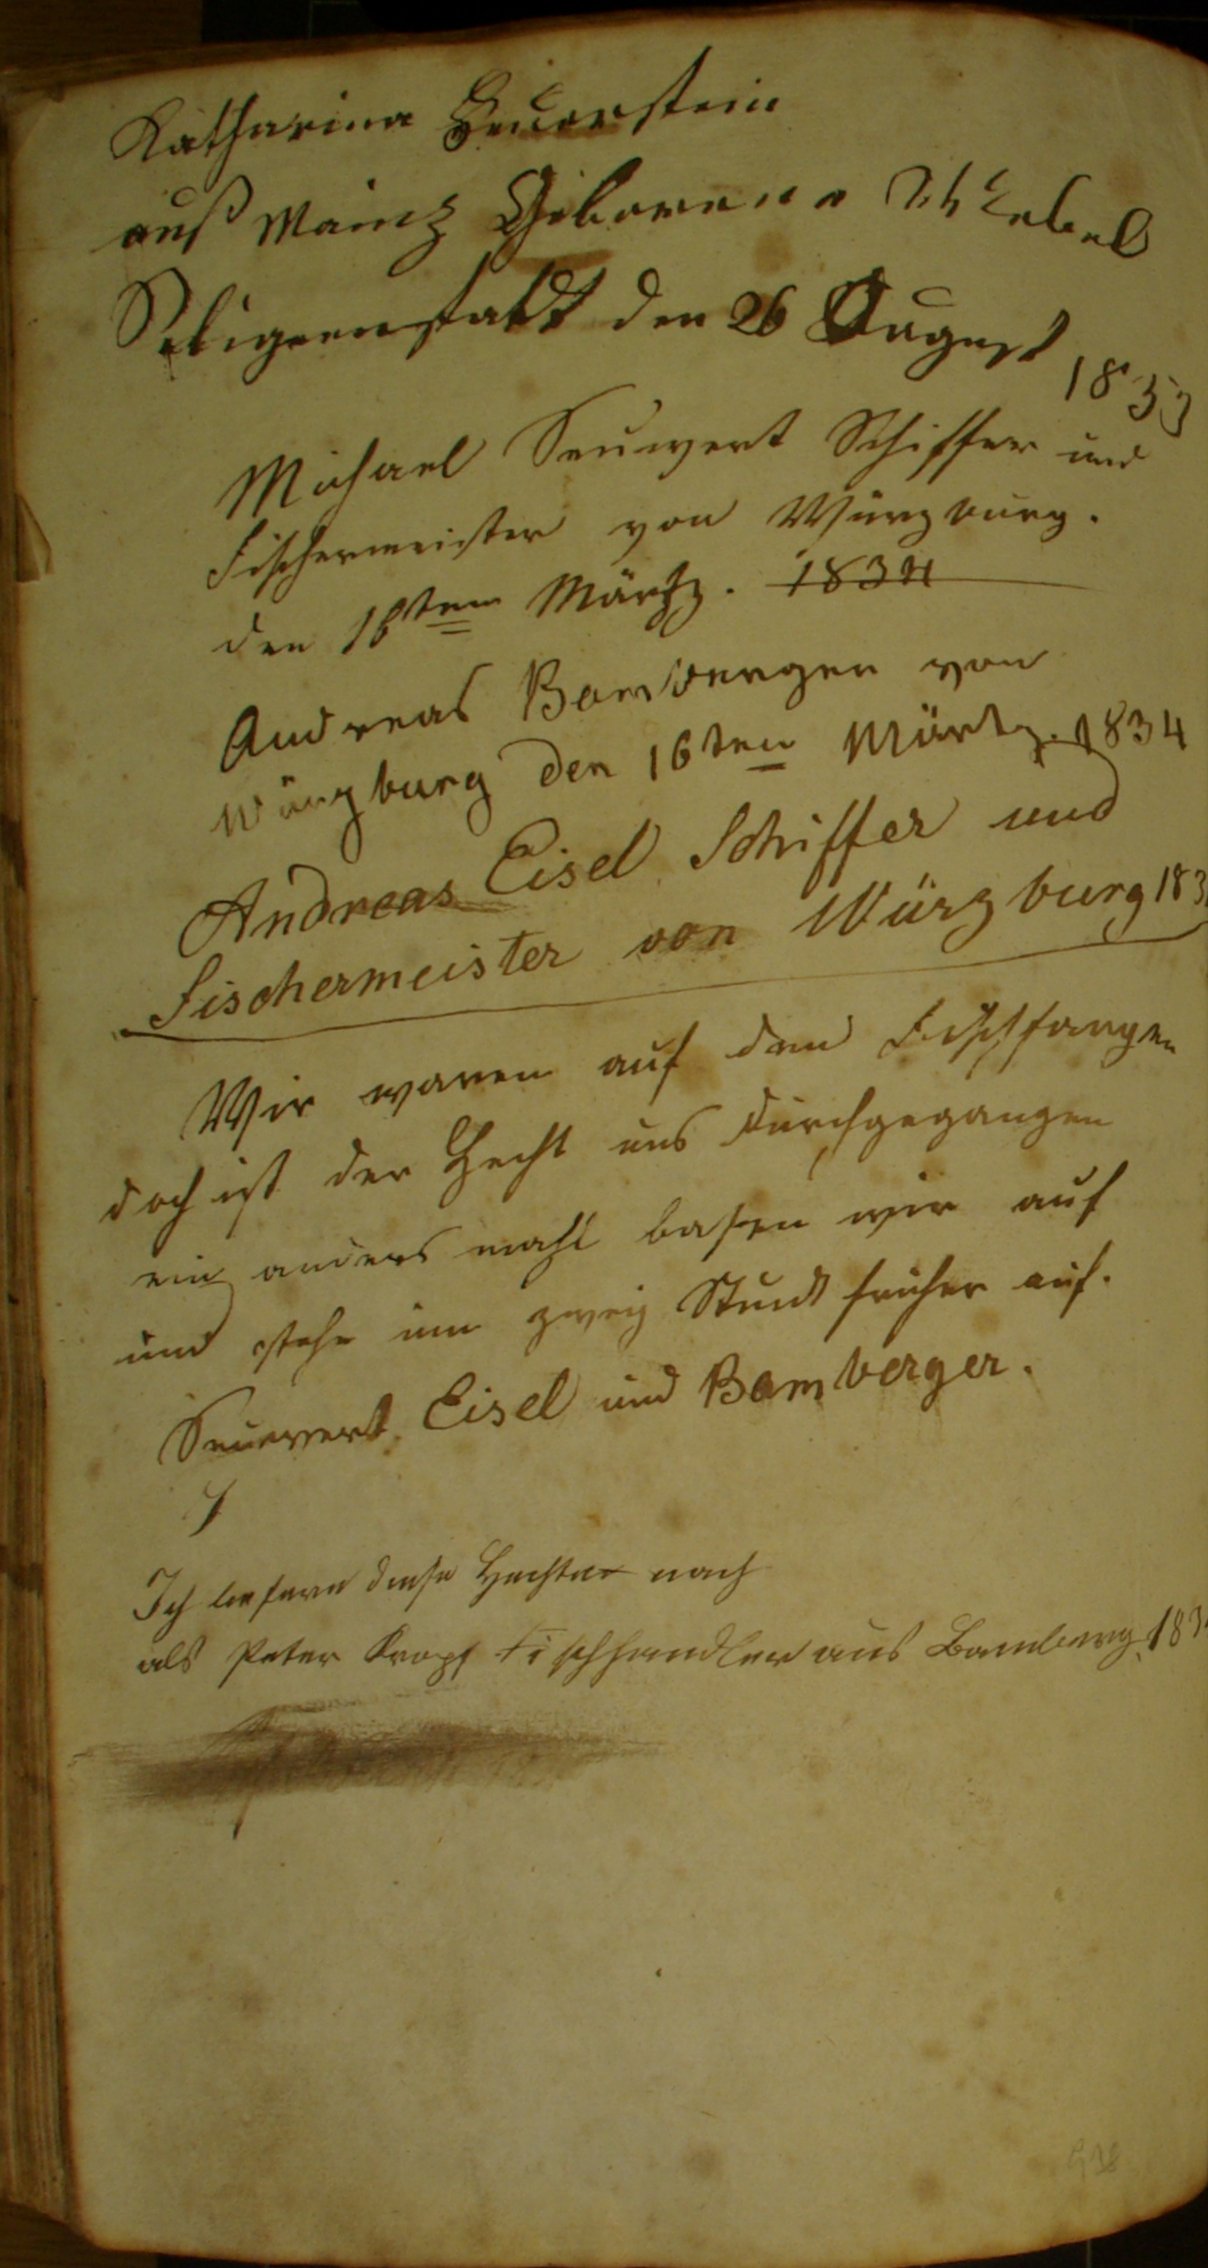 Katharina Feuerstein
auß Mainz Geborene
Seligenstadt den 26 August 1833
Michael Seuwert Schiffer und
Fischermeister von Würzburg.
den 16ten Märtz. 1834
Andreas Bamberger von
Würzburg den 16ten Märtz. 1834
Andreas Eisel Schiffer und
Fischermeister von Würzburg 183
Wir waren auf den Fischfangen
doch ist der Hecht uns durchgegangen
ein anders mahl basen wir auf
und stehe um zweig Stund früher auf.
Seuwert Eisel und Bamberger.
Ich liefere diese Hechter nach
als Peter Kropf Fischhandler aus Bamberg 183